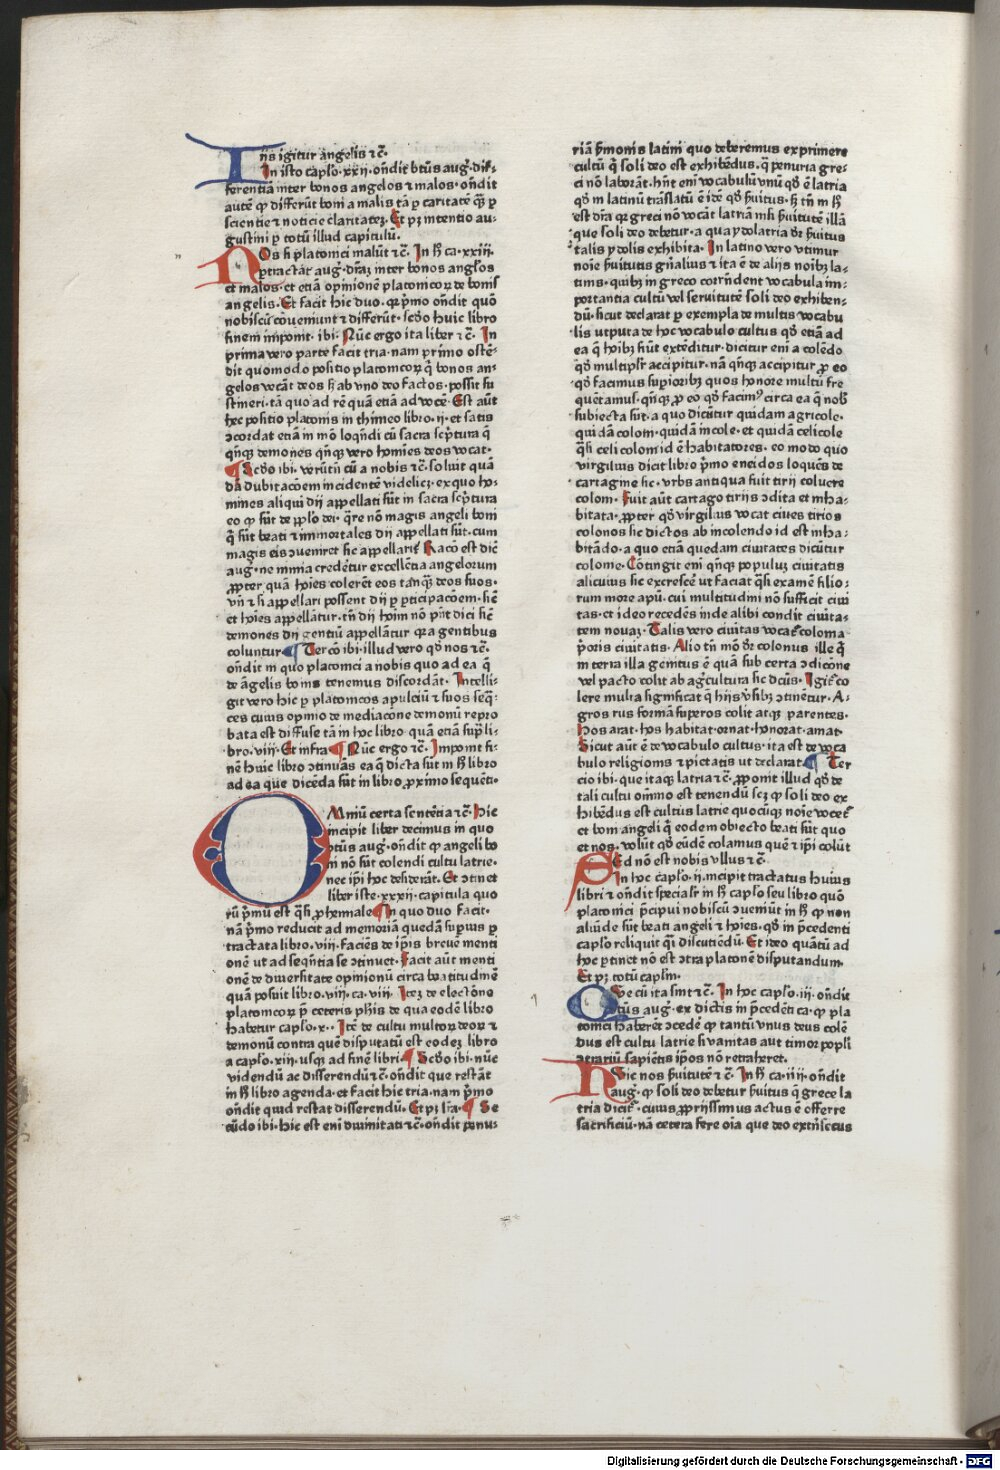 Iñs igitur angelis ⁊ c̄.
In isto capl̓o·xxij·on̄dit btūs aug᷒·dif-
ferentiā inter bonos angelos ⁊ malos·on̄dit
autē ꝙ differūt boni a malis tā ꝑ caritatē qͣꝫ ꝑ
scientie ⁊ noticie claritateꝫ. Et pꝫ intentio au-
gustini ꝑ totū illud capitulū.
Nos si platonici malūt ⁊ c̄. In h̄ ca·xxiij.
ꝑtractat᷒ aug᷒·dr̄aꝫ inter bonos angl̓os
et malos·et etiā opinionē platonicoꝝ de bonis
angelis. Et facit hic duo. qꝛ pͥmo on̄dit quō
nobiscū cōueniunt ⁊ differūt. scd̓o huic libro
finem imponit. ibi. Nūc ergo ita liber ⁊ c̄. In
prima vero parte facit tria·nam primo ostē-
dit quomodo positio platonicoꝝ q̄ bonos an-
gelos vocāt deos si ab vno deo factos·possit su
stineri·tā quo ad rē quā etiā ad vocē. Est aūt
hec positio platonis in thimeo libro·ij·et satis
ↄcordat etiā in mō loqn̄di cū sacra scp̄tura q̄
qn̄qꝫ demones qn̄qꝫ vero homīes deos vocat·
¶ Scd̓o ibi·verūtn̄ cū a nobis ⁊ c̄·soluit quā
dā dubitacōem incidentē videlicꝫ·ex quo ho-
mines aliqui dij appellati sūt in sacra scp̄tura
eo ꝙ sūt de pplo dei·qͣre nō magis angeli boni
q̄ sūt beati ⁊ immortales dij appellati sūt·cum
magis eis ↄueniret sic appellari? Racō est dic̄
aug᷒·ne nimia credēt᷒ur excellētia angelorum
ꝓpter quā hoīes colerēt eos tanqͣꝫ deos suos·
vn̄ ⁊ si appellari possent dij ꝑ ꝑticipacōem·sic̄
et hoīes appellāt᷒ur·tn̄ dij hoīm nō pn̄t dici sic̄
demones dij gentiū appellāt᷒ur qꝛ a gentibus
coluntur ¶ Tercō ibi·illud vero qd̓ nos ⁊ c̄·
on̄dit in quo platonici a nobis quo ad ea q̄
de āgelis bonis tenemus discordāt·Intelli-
git vero hic ꝑ platonicos apuleiū ⁊ suos seqͣ-
ces cuius opinio de mediacōne demonū repro
bata est diffuse tā in hoc libro·quā etiā supͥ li-
bro·viij·Et infra ¶ Nūc ergo ⁊ c̄·Imponit fi-
nē huic libro ↄtinuās ea q̄ dicta sūt in h̄ libro
ad ea que dicēda sūt in libro ꝓximo sequēti·
OMniū certa sentētia ⁊ c̄·Hic
incipit liber decimus in quo
btūs aug᷒·on̄dit ꝙ angeli bo
ni nō sūt colendi cultu latrie·
nec ip̄i hoc desiderāt. Et ↄtinet
liber iste·xxxij·capitula quo
rū pͥmū est qͣsi ꝓhemiale ¶ In quo duo facit·
nā pͥmo reducit ad memoriā quedā superius ꝑ
tractata libro·viij·faciēs de ip̄is breuē menti
onē ut ad seqn̄tia se ↄtinuet·Facit aūt menti
onē de diuersitate opinionū circa beatitudinē
quā posuit libro·viij·ca·viij·Iteꝫ de electōne
platonicoꝝ p̄ ceteris ph̄is de qua eodē libro
habetur capl̓o·x··Itē de cultu multoꝝ deoꝝ ⁊
demonū contra quē disputatū est eodeꝫ libro
a capl̓o·xiij·usqꝫ ad finē libri ¶ Scd̓o ibi·nūc
videndū ac disserendū ⁊ c̄·on̄dit que restāt
in h̄ libro agenda·et facit hic tria·nam pͥmo
on̄dit quid restat disserendū·Et pꝫ lr̄a·¶ Se
cūdo ibi·hic est eni diuinitati ⁊ c̄·on̄dit penu-
riā p̄monis latini quo deberemus exprimere
cultū q̄ soli deo est exhibēdus·qͣ penuria gre-
ci nō laborāt·hn̄t eni vocabulū vnū qd̓ ē latria
qd̓ in latinū trāslatū ē idē qd̓ ẜuitus·sꝫ tn̄ in h̄
est dr̄a qꝛ greci nō vocāt latriā nisi ẜuitutē illā
que soli deo debetur·a qua ydolatria dr̄ ẜuitus
talis ydolis exhibita·In latino vero vtimur
noīe ẜuitutis gn̄alius ⁊ ita ē de alijs noībꝫ la-
tinis·quibꝫ in greco corrn̄dent vocabula im-
portantia cultū vel seruitutē soli deo exhiben-
dū·sicut declarat ꝑ exempla de multis vocabu
lis utputa de hoc vocabulo cultus qd̓ etiā ad
ea q̄ hoībꝫ fiūt extēditur·dicitur eni a colēdo
qd̓ multipl̓r accipitur·nā qn̄qꝫ accipitur ꝓ eo
qd̓ facimus supioribꝫ quos honore multū fre
quētamus·qn̄qꝫ ꝓ eo qd̓ facim᷒ circa ea q̄ nob̄
subiecta sūt·a quo dicūtur quidam agricole·
quidā coloni·quidā incole·et quidā celicole
qͣsi celi coloni id ē habitatores·eo modo quo
virgilius dicit libro pͥmo eneidos loquēs de
cartagine sic·vrbs antiqua fuit tirij coluere
coloni·Fuit aūt cartago tirijs ↄdita et inha-
bitata·ꝓpter qd̓ virgilius vocat ciues tirios
colonos sic dictos ab incolendo id est inha-
bitādo·a quo etiā quedam ciuitates dicūtur
colonie·Cōtingit eni qn̄qꝫ populuꝫ ciuitatis
alicuius sic excrescē ut faciat qͣsi examē filio-
rum more apū·cui multitudini nō sufficit ciui
tas·et ideo recedēs inde alibi condit ciuita-
tem nouaꝫ·Talis vero ciuitas vocat᷒ colonia
pͥoris ciuitatis·Alio tn̄ mō dr̄ colonus ille q̄
in terra illa genitus ē quā sub certa ↄdicōne
vel pacto colit ab ag᷒cultura sic dc̄us·Igit᷒ co
lere multa significat q̄ hijs v̓sibꝫ ↄtinētur·A-
gros rus formā superos colit atqꝫ parentes·
Hos arat·hos habitat·ornat·honorat·amat
Sicut aūt ē de vocabulo cultus·ita est de voca
bulo religionis ⁊ pietatis ut declarat ¶ Ter
cio ibi·que itaqꝫ latria ⁊ c̄·ꝓponit illud qd̓ de
tali cultu oīno est tenendū scꝫ ꝙ soli deo ex
hibēdus est cultus latrie quocūqꝫ noīe vocet᷒
et boni angeli q̄ eodem obiecto beati sūt quo
et nos·volūt qd̓ eūdē colamus quē ⁊ ip̄i colūt
Sed nō est nobis vllus ⁊ c̄·
In hoc capl̓o·ij·incipit tractatus huius
libri ⁊ on̄dit specialr̄ in h̄ capl̓o seu libro quō
platonici p̄cipui nobiscū ↄueniūt in h̄ ꝙ non
aliūde sūt beati angeli ⁊ hoīes·qd̓ in p̄cedenti
capl̓o reliquit qͣsi discutiēdū·Et ideo quātū ad
hoc ꝑtinet nō est ↄtra platonē disputandum·
Et pꝫ totū capl̓m·
Que cū ita sint ⁊ c̄·In hoc capl̓o·iij·on̄dit
btūs aug᷒·ex dictis in p̄cedēti ca·ꝙ pla
tonici haberēt ↄcedē ꝙ tantū vnus deus colē
dus est cultu latrie si vanitas aut timor popli
ↄtrariū sapiētis ip̄os nō retraheret·
Hic nos ẜuitutē ⁊ c̄·In h̄ ca·iiij·on̄dit
aug᷒·ꝙ soli deo debetur ẜuitus q̄ grece la
tria dicit᷒·cuius ꝓprijssimus actus ē offerre
sacrificiū·nā cetera fere oīa que deo extn̄secus